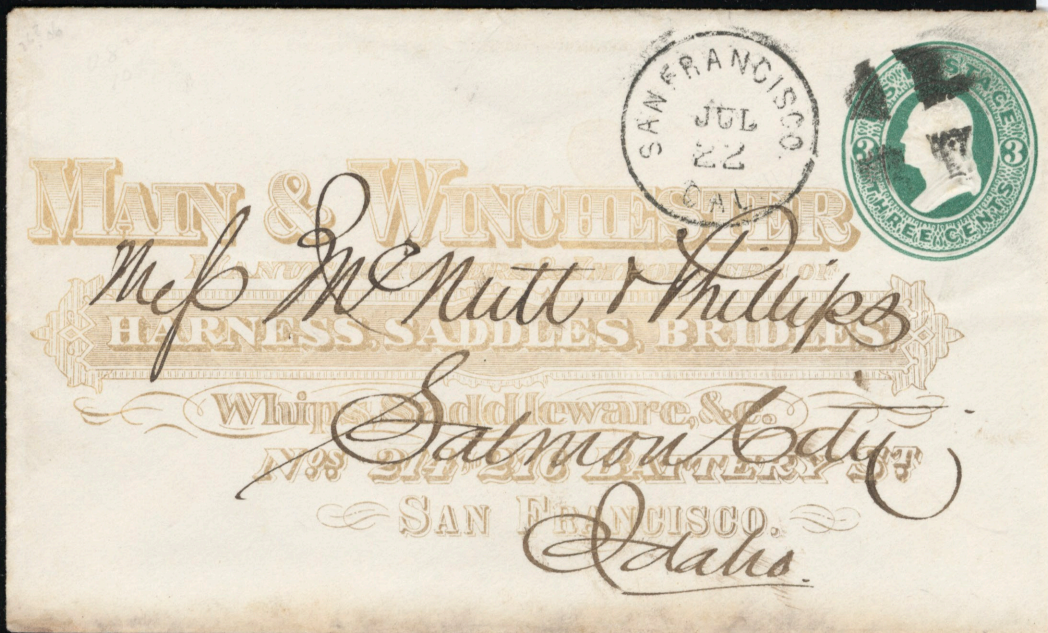 SAN FRANCISCO
JUL
22
CAL
U.S. POSTAGE
3 3
THREE CENTS
MAIN & WINCHESTER
MANUFACTURERS & IMPORTERS OF
HARNESS, SADDLES, BRIDLES,
Whips, Saddleware, &c.
Nos. 214 & 216 BATTERY ST.
SAN FRANCISCO.
Mess McNutt & Phillips
Salmon City
Idaho.